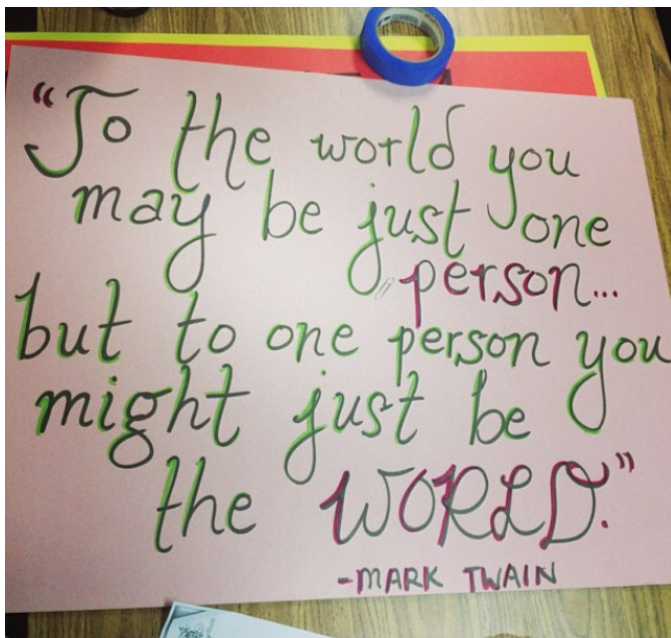 “To the world you
may be just one
person...
but to one person you
might just be
the WORLD.”
-MARK TWAIN